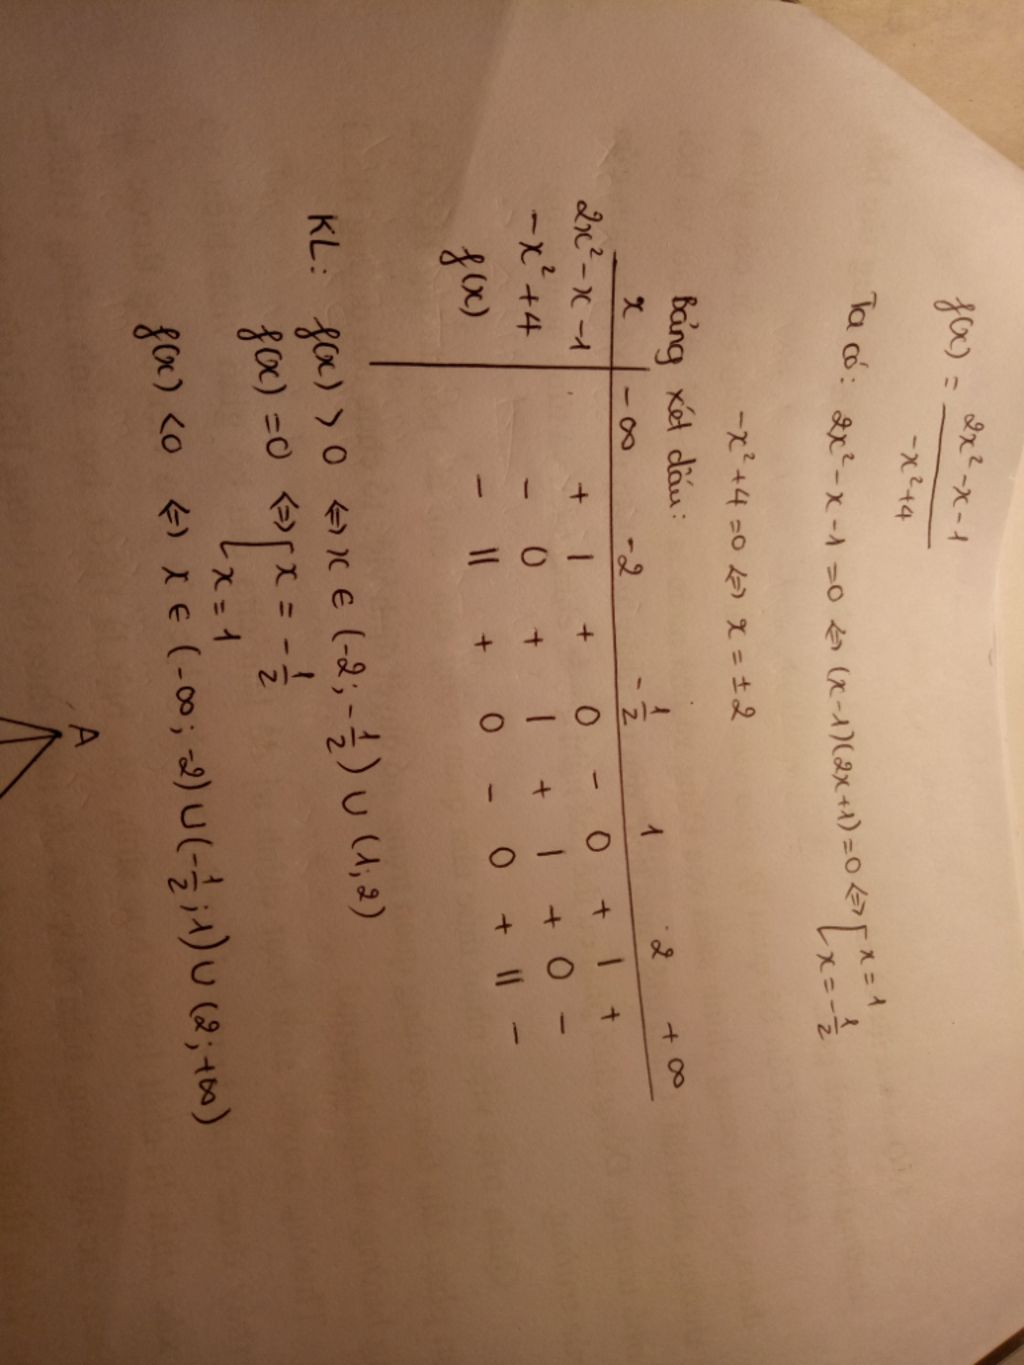 f(x) = (2x² - x - 1)/(-x² + 4)
Ta có: 2x² - x - 1 = 0 ⇔ (x-1)(2x+1) = 0 ⇔ [ x = 1
[ x = -1/2
-x² + 4 = 0 ⇔ x = ±2
Bảng xét dấu:
x | -∞ -2 -1/2 1 2 +∞
2x² - x - 1 | + | + 0 - 0 + | +
-x² + 4 | - 0 + | + | + 0 -
f(x) | - || + 0 - 0 + || -
KL: f(x) > 0 ⇔ x ∈ (-2; -1/2) ∪ (1; 2)
f(x) = 0 ⇔ [ x = -1/2
[ x = 1
f(x) < 0 ⇔ x ∈ (-∞; -2) ∪ (-1/2; 1) ∪ (2; +∞)
A